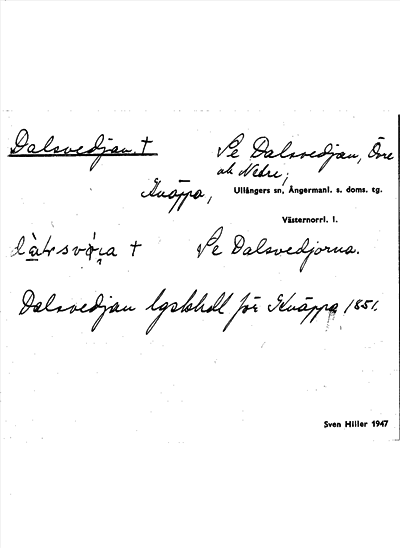 Dalsvedjan. †
Se Dalsvedjan, Övre
och Nedre;
Knäppa,
Ullångers sn, Ångermanl. s. doms. tg.
Västernorrl. l.
† Se Dalsvedjorna.
Dalsvedjan lgskholl för Knäppa 1851.
Sven Hiller 1947